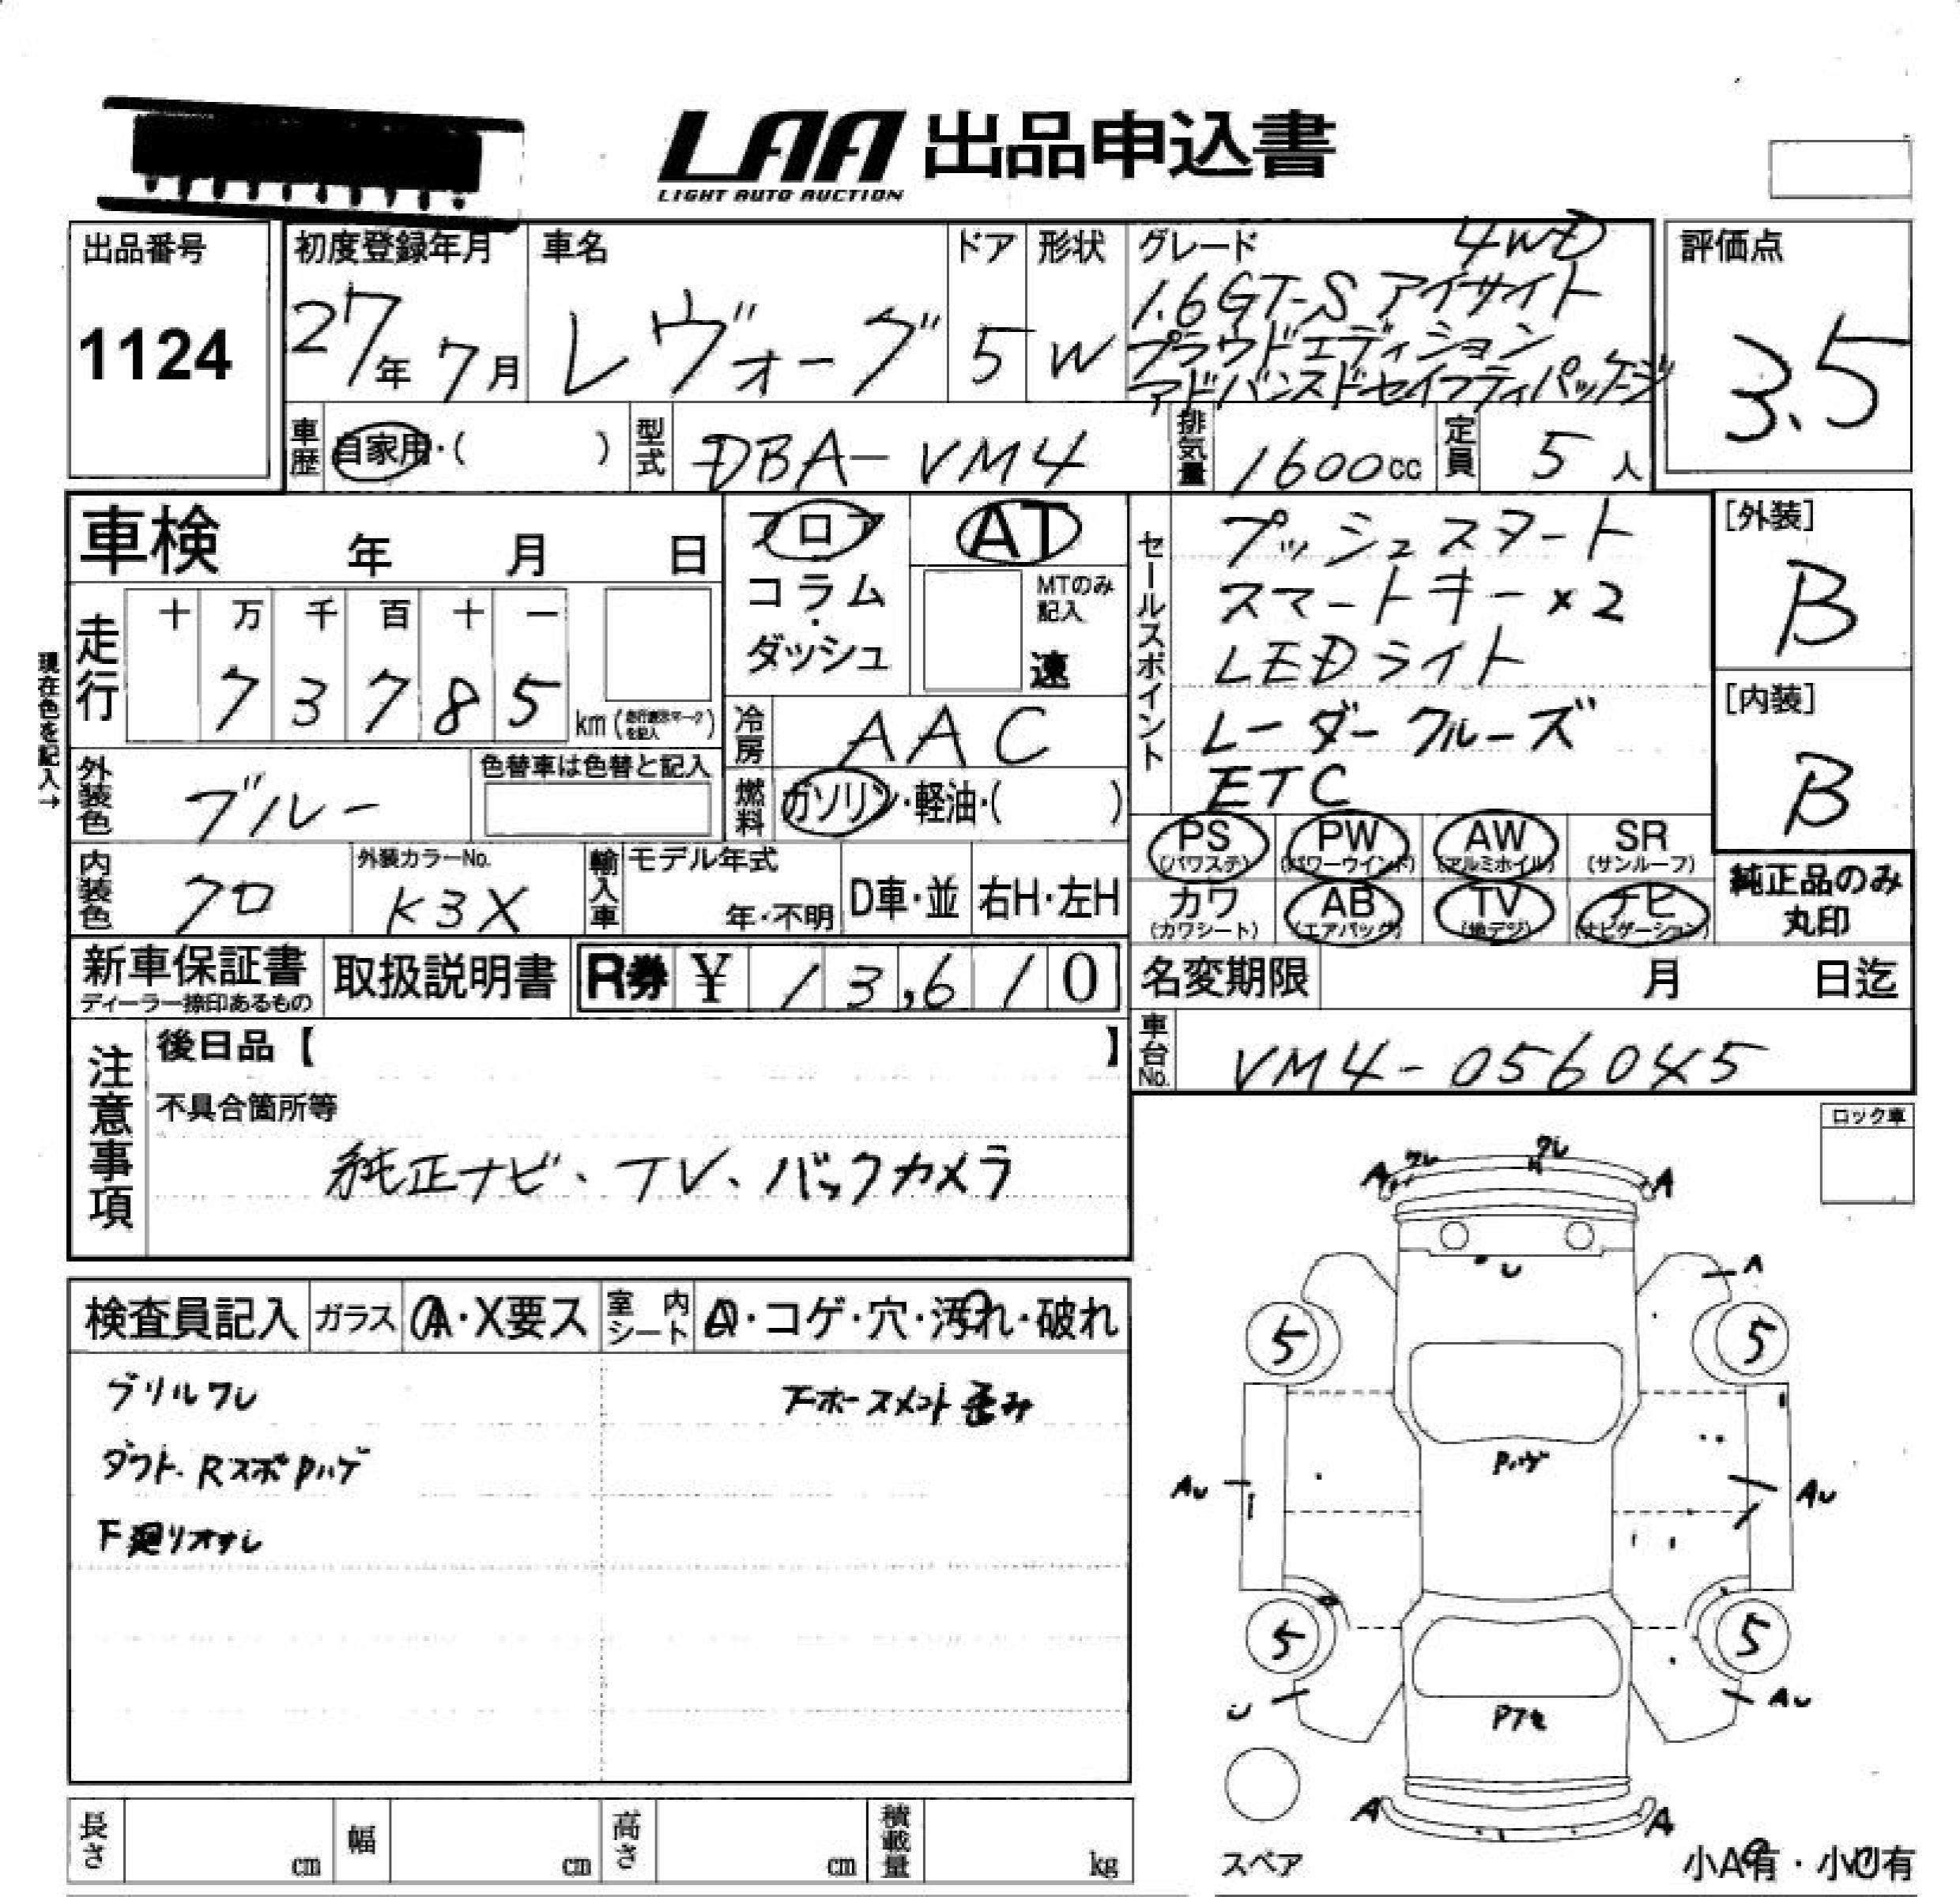 LAA 出品申込書
LIGHT AUTO AUCTION
出品番号
1124
初度登録年月
27年 7月
車名
レヴォーグ
ドア
5
形状
W
グレード
4WD
1.6GT-S アイサイト
プラウドエディション
アドバンスドセイフティパッケージ
評価点
3.5
車歴
自家用・( )
型式
DBA-VM4
排気量
1600cc
定員
5人
車検 年 月 日
フロア
コラム
・
ダッシュ
AT
MTのみ
記入
速
セールスポイント
プッシュスタート
スマートキー×2
LEDライト
レーダークルーズ
ETC
[外装]
B
[内装]
B
現在色を記入→
走行
十 万 千 百 十 一
7 3 7 8 5
km(走行表示マークを記入)
冷房
AAC
外装色
ブルー
色替車は色替と記入
燃料
ガソリン・軽油・( )
PS
(パワステ)
PW
(パワーウインド)
AW
(アルミホイル)
SR
(サンルーフ)
カワ
(カワシート)
AB
(エアバッグ)
TV
(地デジ)
ナビ
(ナビゲーション)
純正品のみ
丸印
内装色
クロ
外装カラーNo.
K3X
輸入車
モデル年式
年・不明
D車・並
右H・左H
新車保証書
ディーラー捺印あるもの
取扱説明書
R券 ¥ 13,610
名変期限 月 日迄
車台No.
VM4-056045
注意事項
後日品【 】
不具合箇所等
純正ナビ、TV、バックカメラ
ロック車
検査員記入
ガラス
A・X要ス
室内シート
・コゲ・穴・汚れ・破れ
グリルワレ
ダクト、RスポPハゲ
F廻りオサレ
下ホースメント歪み
A ワレ ワレ A
U
A
5 5
Pハゲ
AU AU
5 5
U AU
Pアセ
A A
スペア
小A有・小U有
長さ cm
幅 cm
高さ cm
積載量 kg